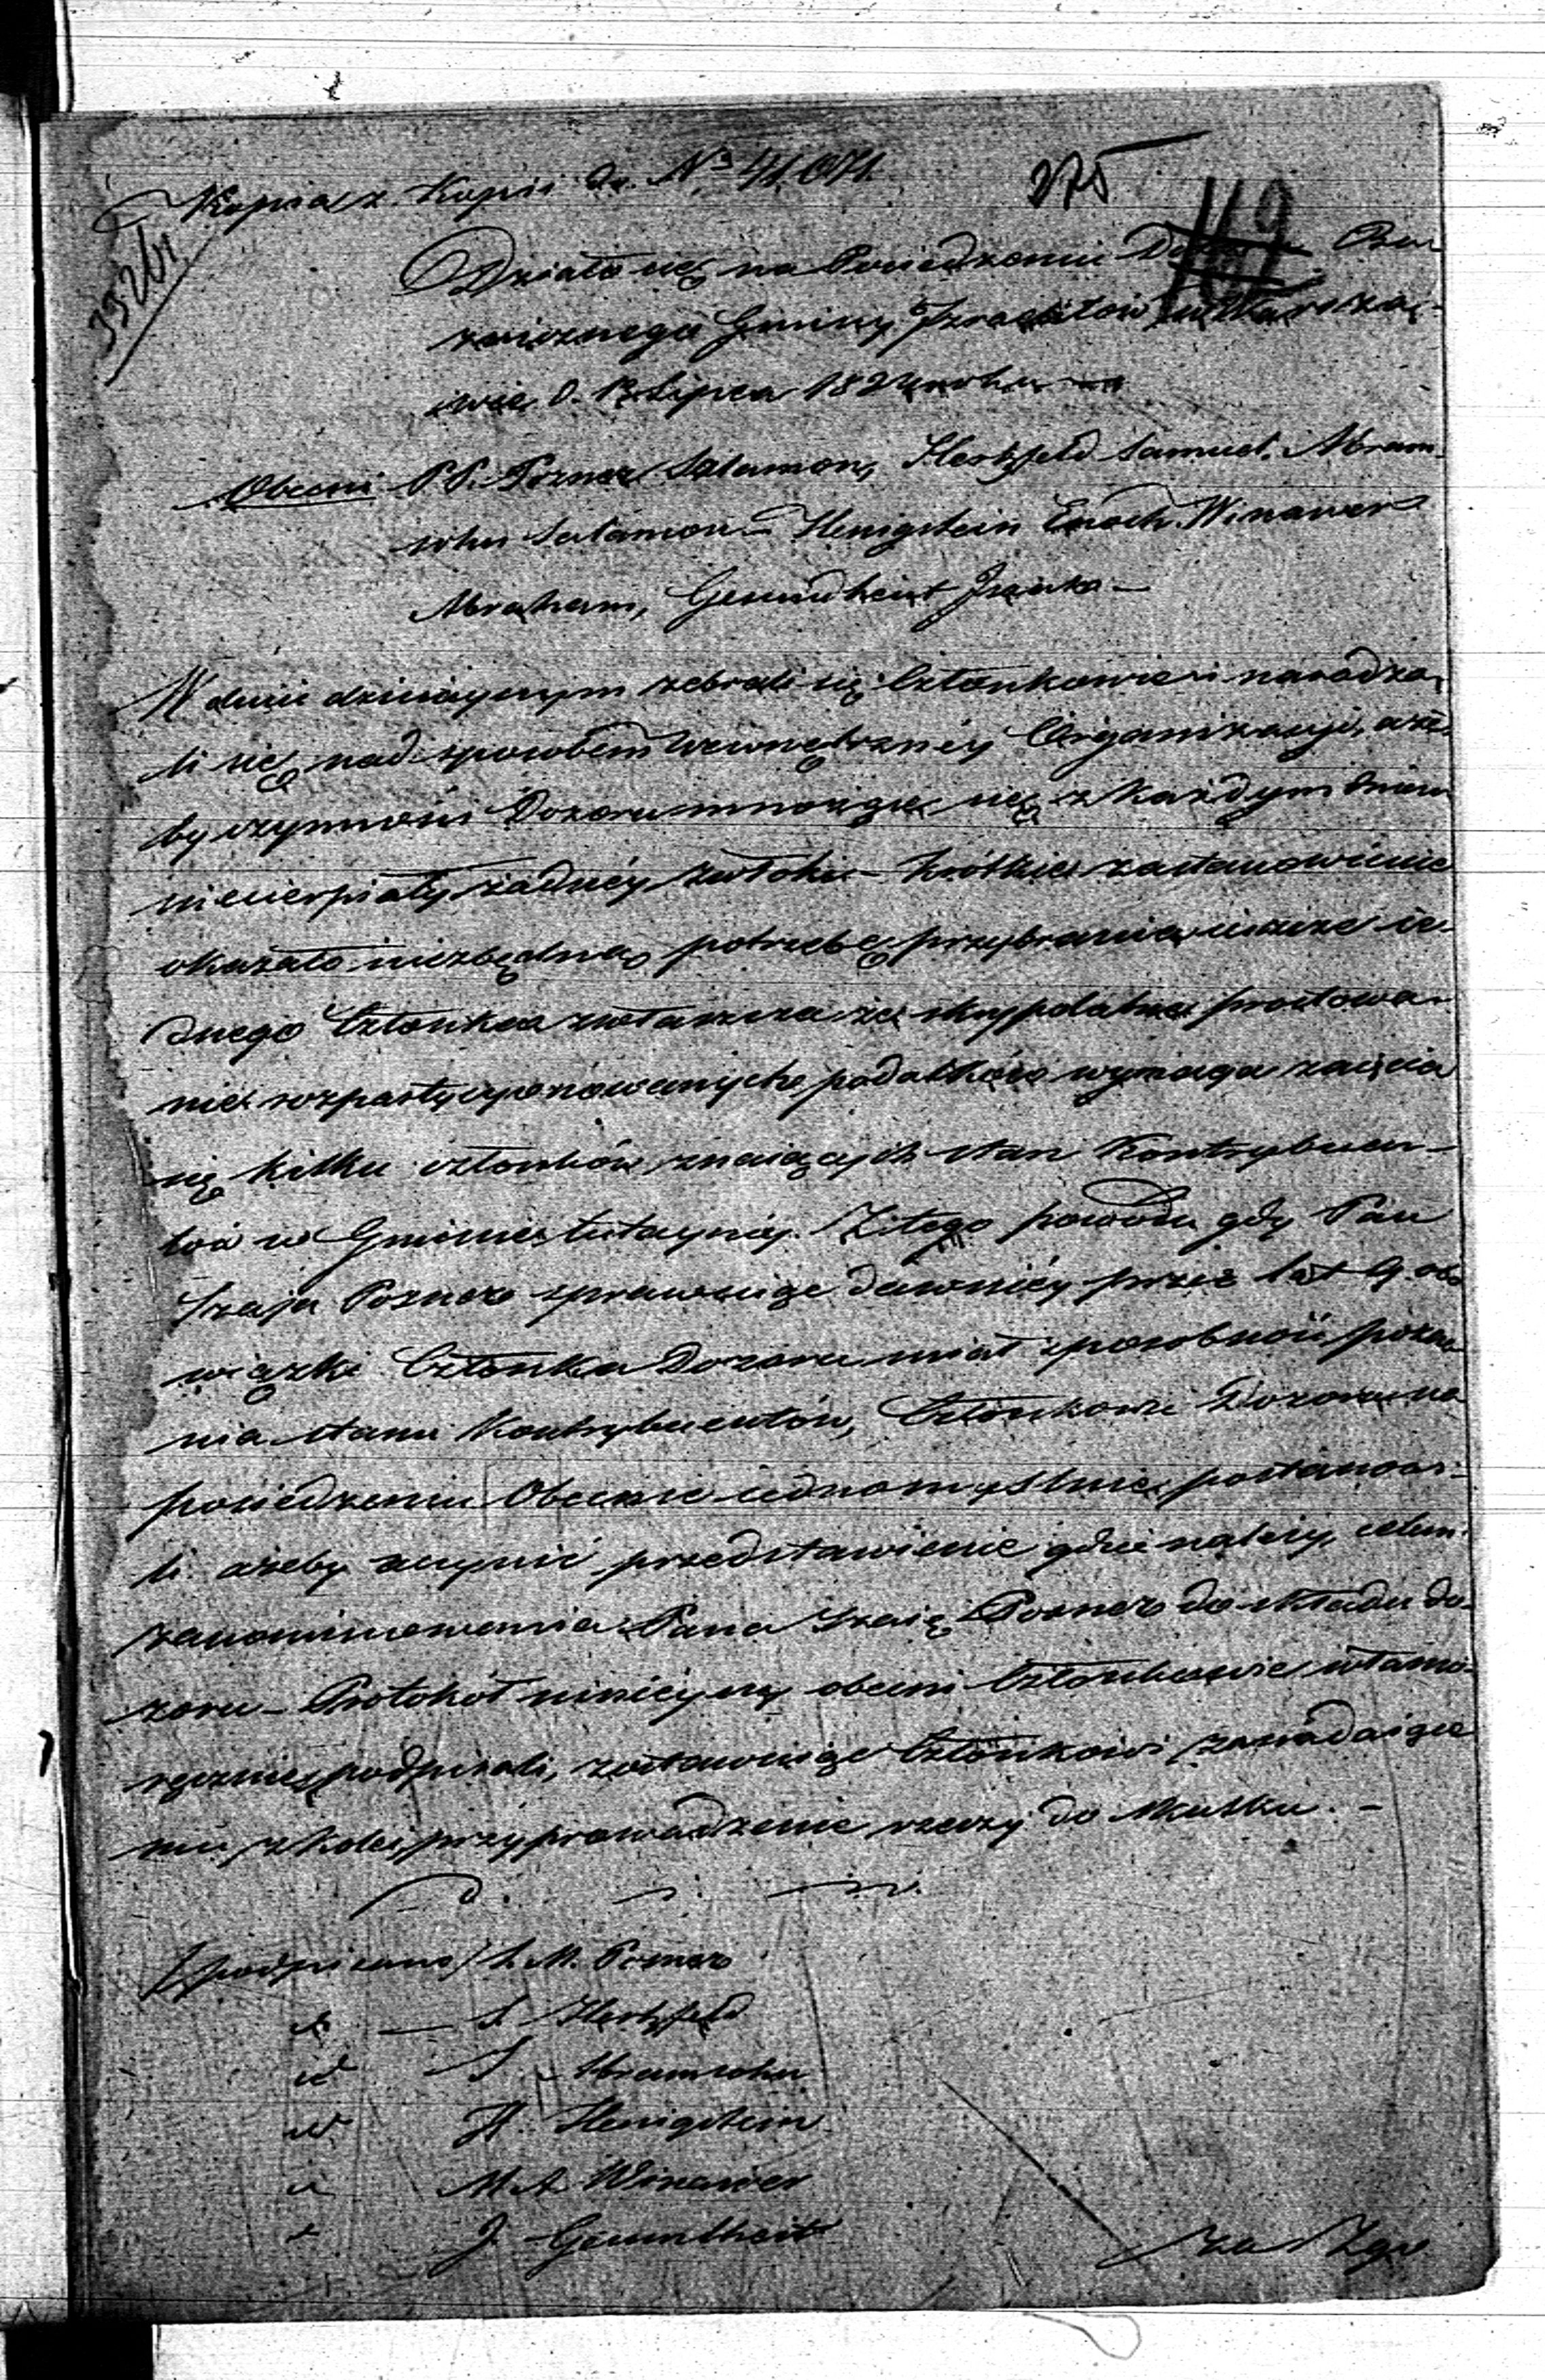 Kopia z Kopii do N° 41,071
275
Działo się na Posiedzeniu
znicznego Gminy Izraelitów
wie d. Lipca 182
Obecni PP. Pozner Salamon, Hertzfeld Samuel. Abram
sohn Salamon – Henigstein Enoch. Winawer
Abraham, Gesundheit Izaak –
W dniu dzisieyszym zebrali się Członkowie i naradza
li się nad sposobem wewnętrzney Organizacyi, aże
by czynności Dozoru mnożące się z każdym dniem
niecierpiały żadney zwłoki – krótkie zastanowienie
okazało niezbędną potrzebę przybrania ieszcze ie
dnego Członka zwłaszcza że prostowa
nie rozpartycyonowanych podatków wymaga zaięcia
się kilku członków znaiących stan Kontrybuen-
tów w Gminie tuteyszey. Z tego powodu gdy Pan
Izaja Pozner sprawuiąc dawniey przez lat 9. obo
wiązki Członka Dozoru miał sposobność pozna
nia stanu Kontrybuentów, Członkowie Dozoru na
posiedzeniu Obecnie iednomyślnie postanowi-
li ażeby uczynić przedstawienie gdzie należy, celem
zanominowania Pana Izaię Pozner do składu do-
zoru – Protokół ninieyszy obecni Członkowie własno-
ręcznie podpisali, zostawuiąc Członkowi zasiadaiące
mu z kolei przyprowadzenie rzeczy do skutku. –
/podpisano/ S. M. Pozner
— S. Hertzfeld
id S. Abramsohn
id H. Henigstein
M A Winawer
J. Gesundheit
Za Zgo